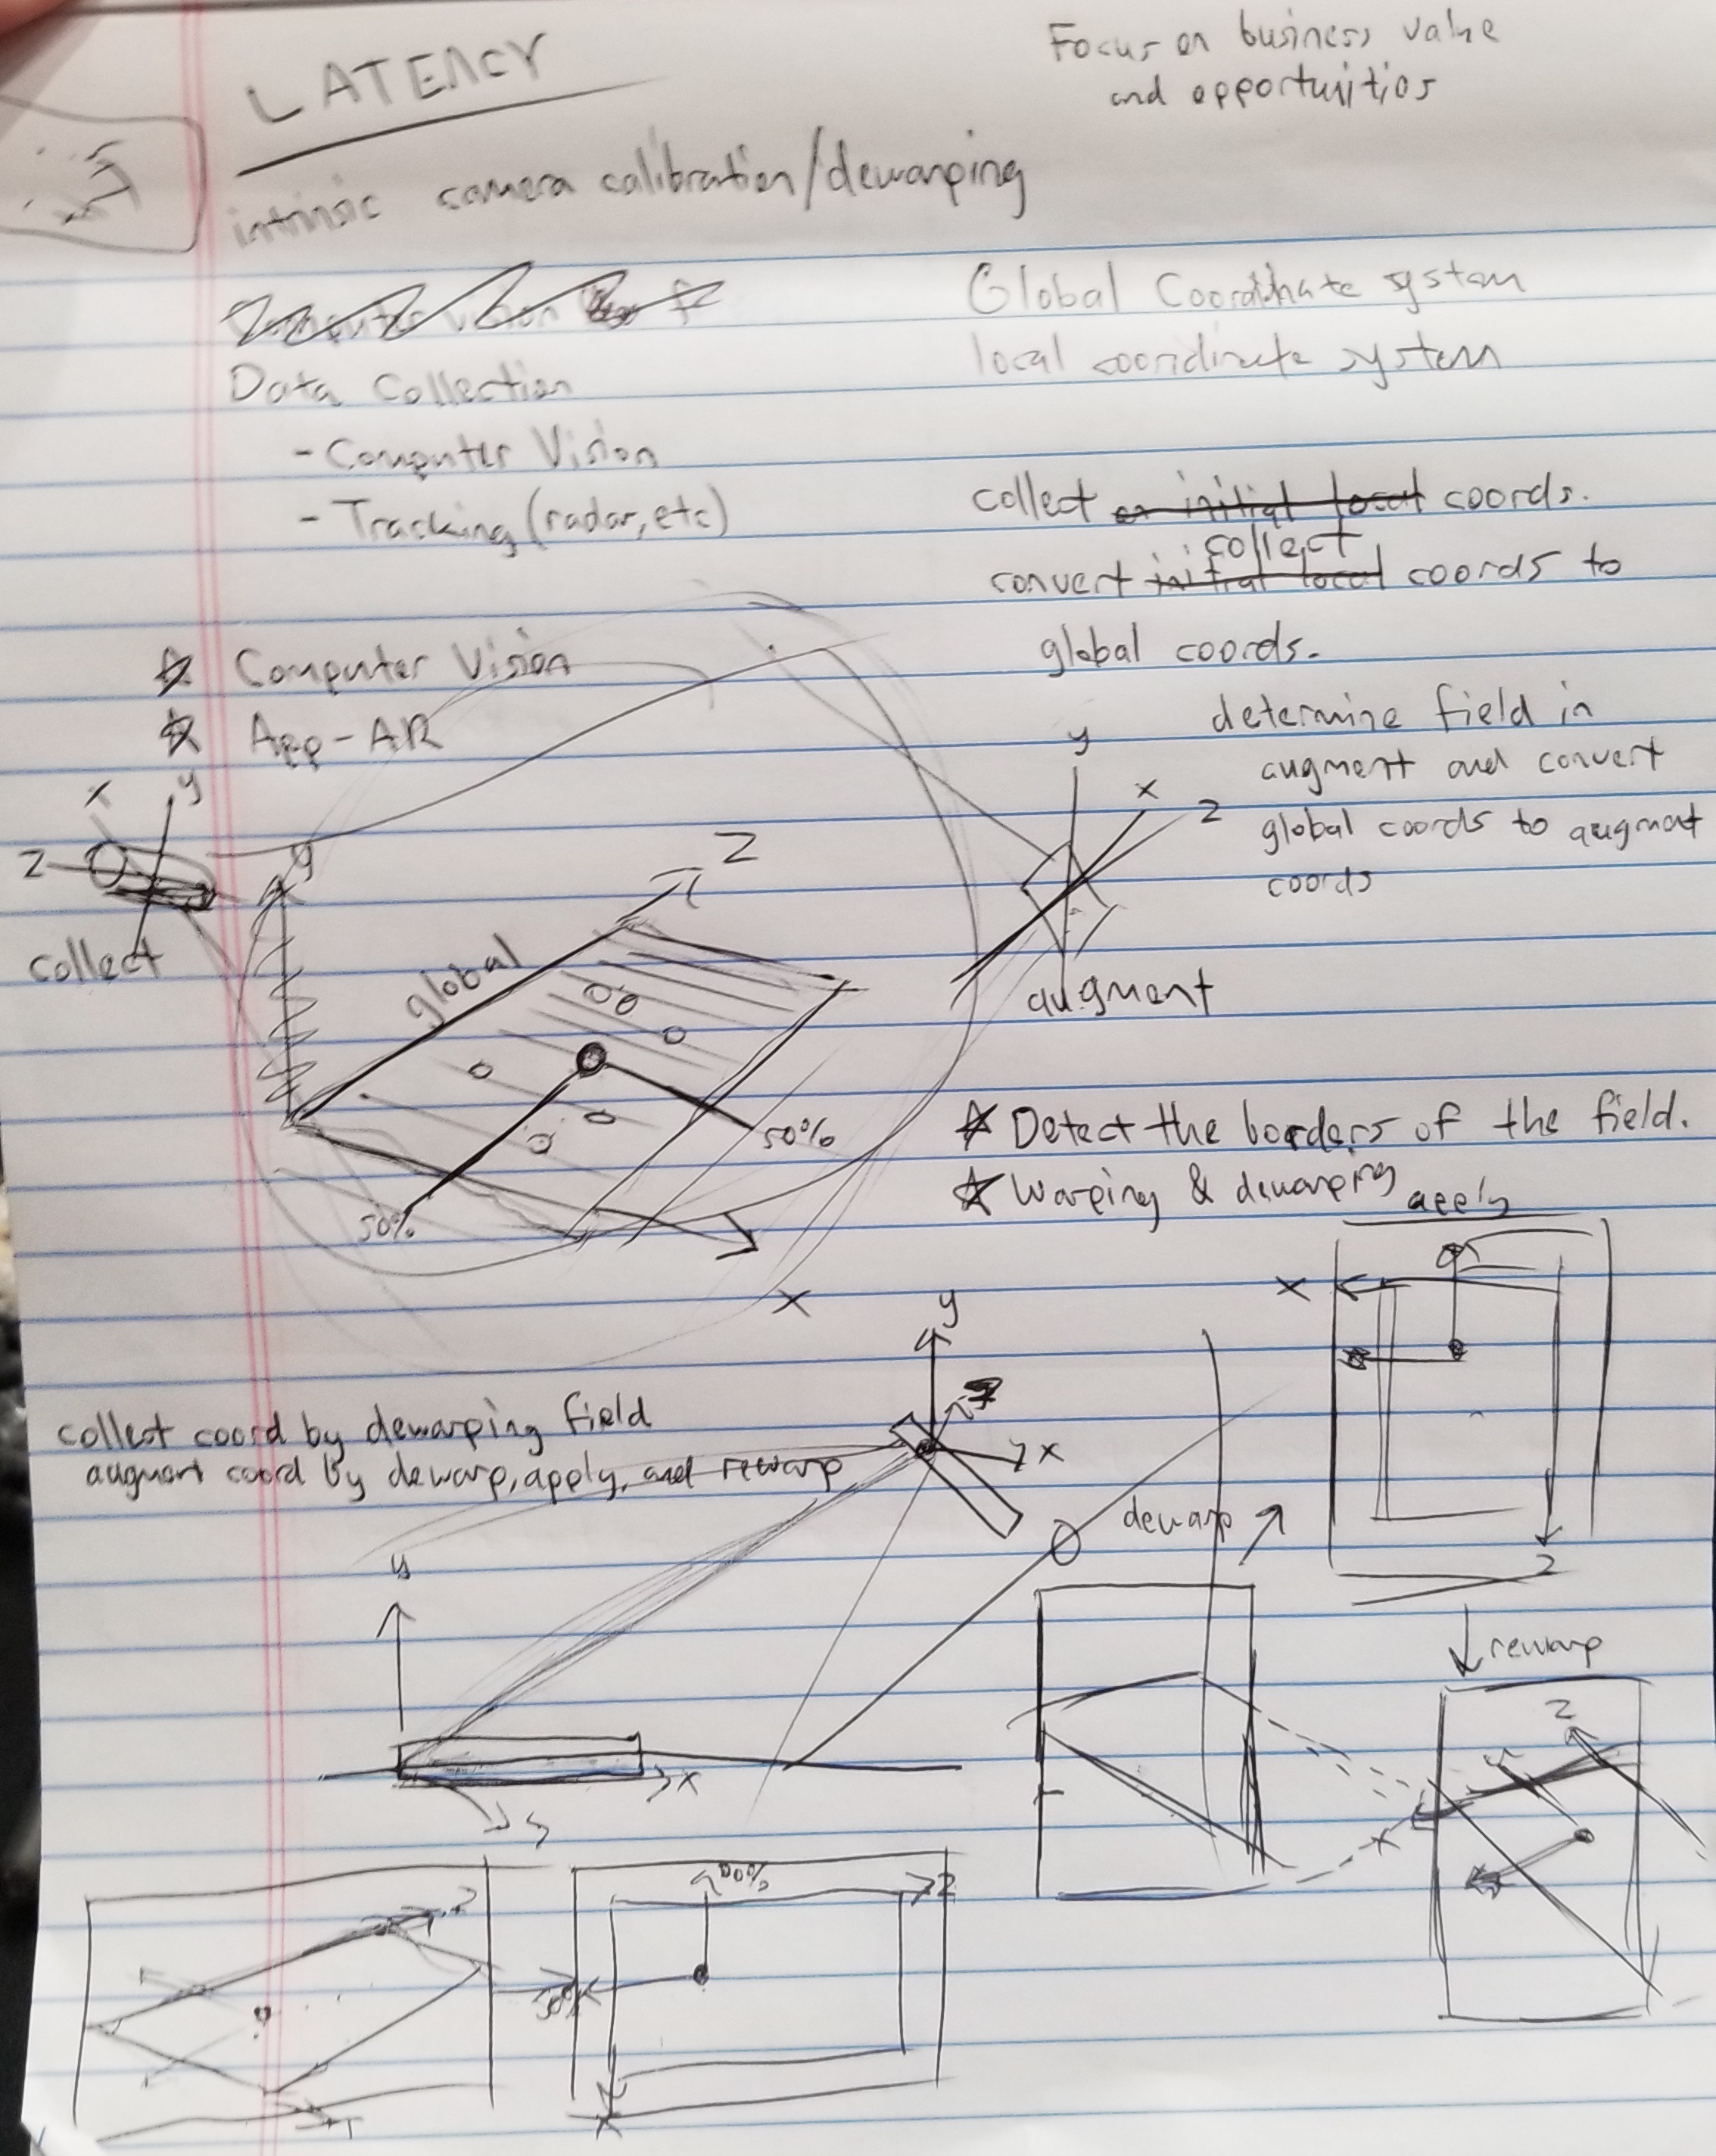 LATENCY
Focus on business value
and opportunities
intrinsic camera calibration/dewarping
Global Coordinate system
local cooridinate system
Data Collection
- Computer Vision
- Tracking (radar, etc)
collect or initial local coords.
collect
convert initial local coords to
global coords.
☆ Computer Vision
☆ App-AR
determine field in
augment and convert
global coords to augment
coords
y
x
z
y
z
collect
y
z
global
augment
50%
50%
x
☆ Detect the borders of the field.
☆ Warping & dewarping
apply
x
z
y
x
collect coord by dewarping field
augment coord by dewarp, apply, and rewarp
dewarp
y
x
rewarp
z
x
z
50%
z
50%
x